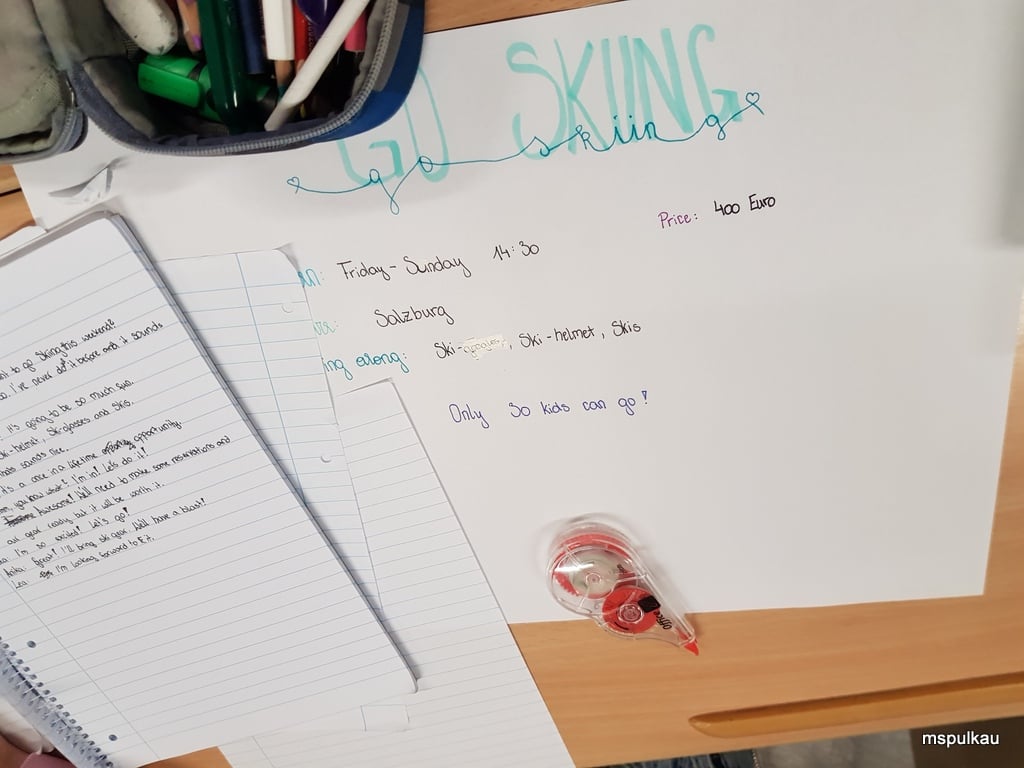 GO SKIING
go skiing
Price: 400 Euro
Friday - Sunday 14:30
Salzburg
ing along: Ski-googles, Ski-helmet, Skis
Only 30 kids can go!
t to go Skiing this weekend?
o, I've never do it before and it sounds
. It's going to be so much fun.
ki-helmet, Ski-glasses and Skis.
that sounds like
it's a once in a lifetime opportunity.
you know what? I'm in! Let's do it!
Awesome! We'll need to make some reservations and
our gear ready but it will be worth it.
I'm so excited! Let's go!
Great! I'll bring ski gear. We'll have a blast!
Lea: I'm looking forward to it.
office
mspulkau